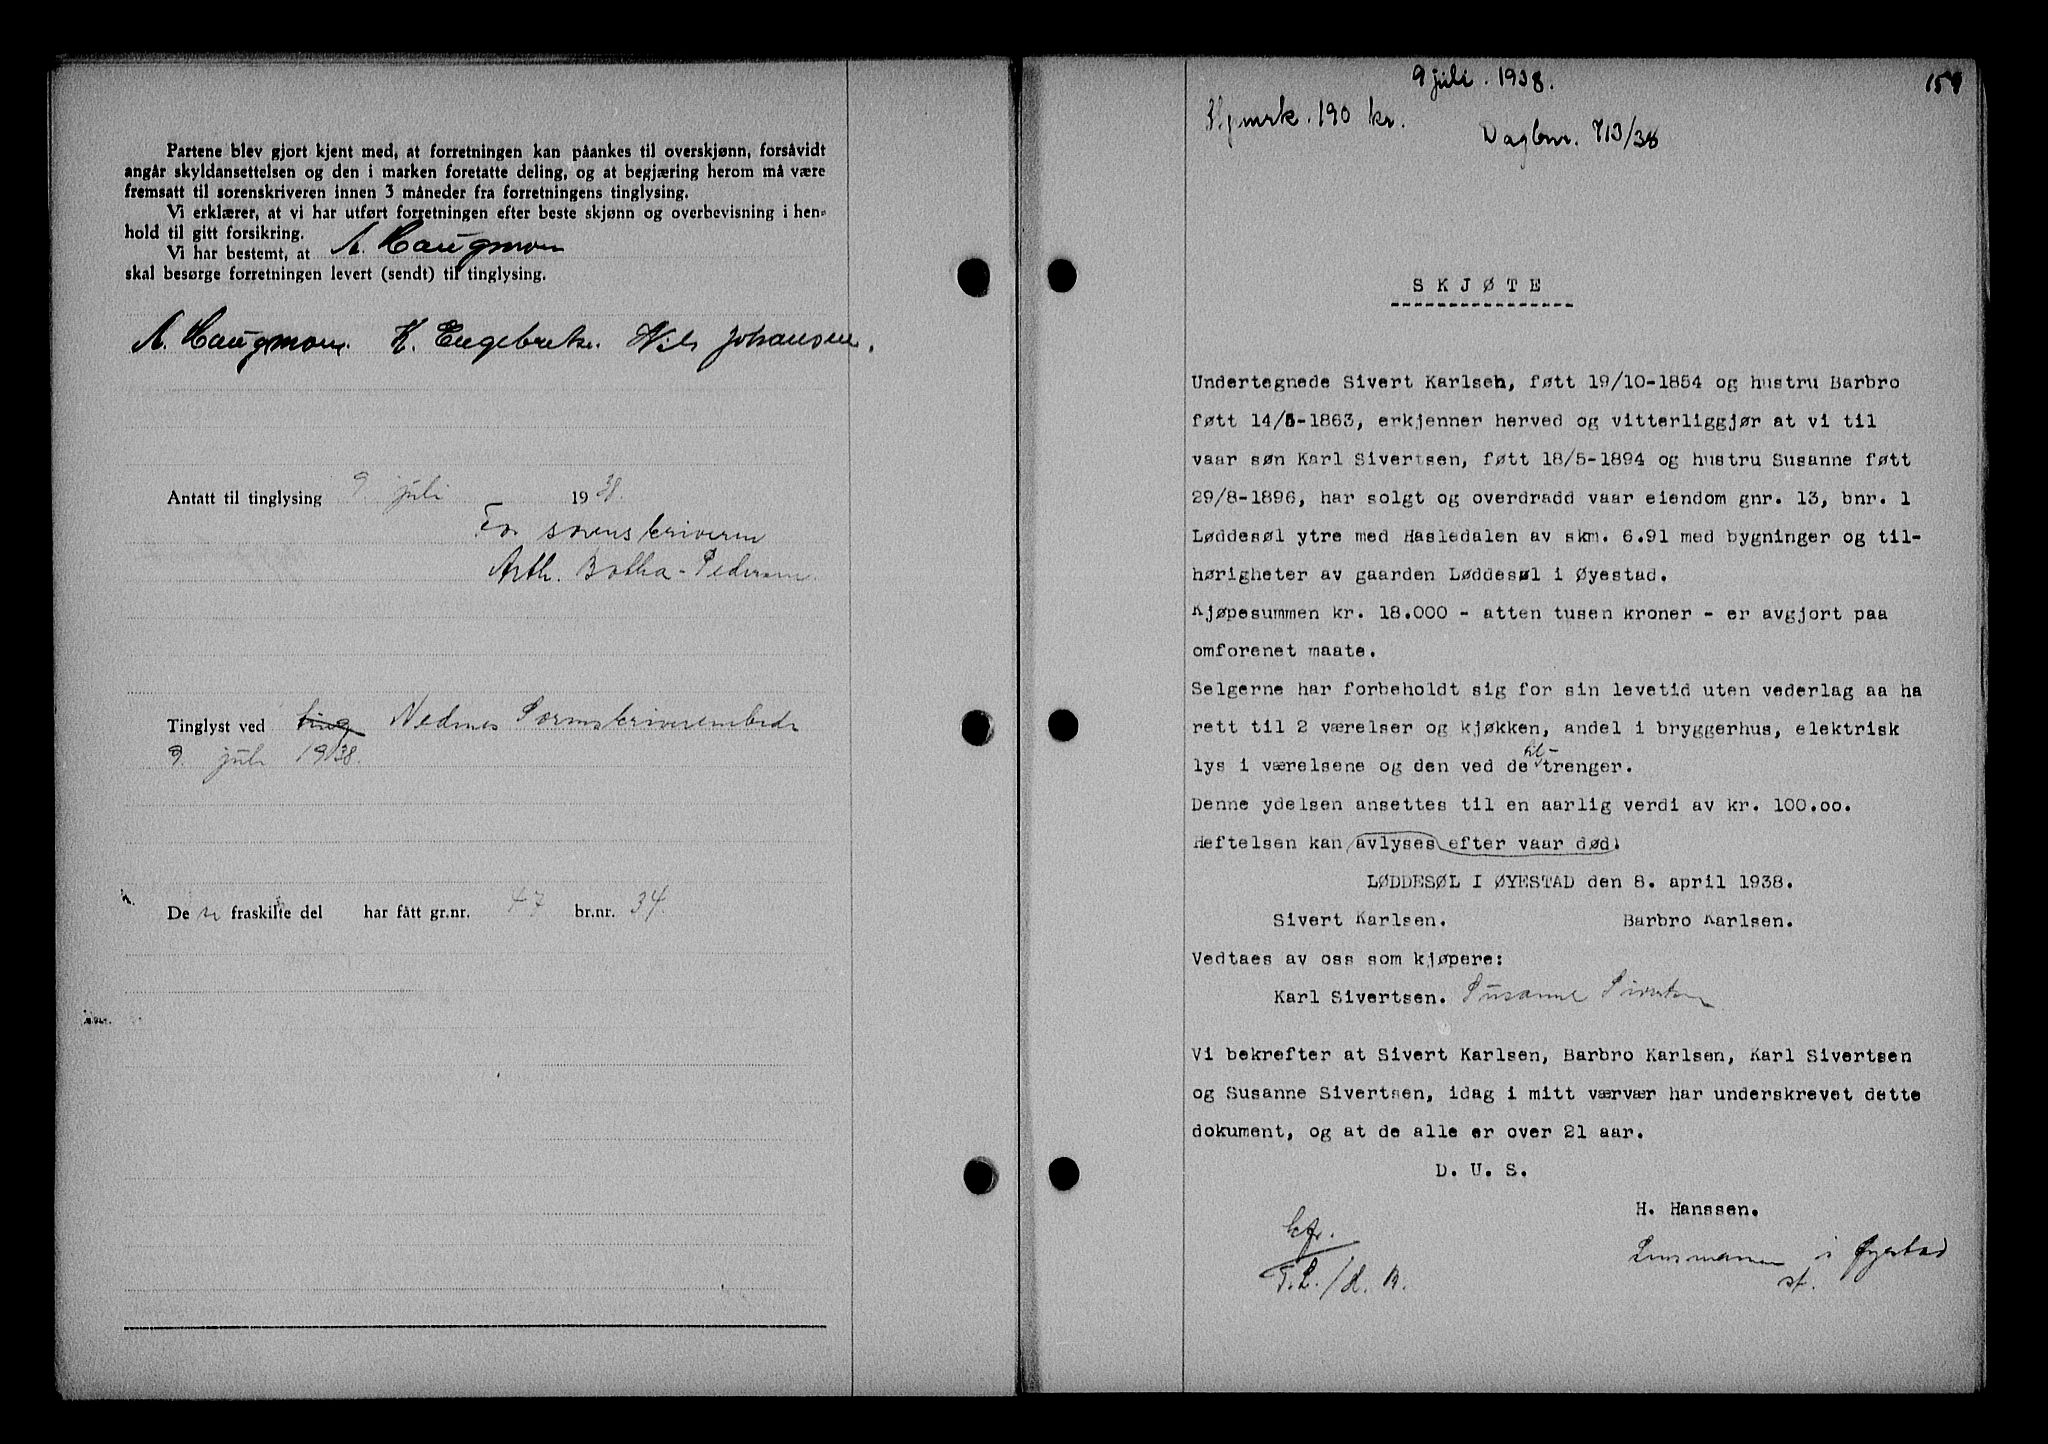 Partene blev gjort kjent med, at forretningen kan påankes til overskjønn, forsåvidt
angår skyldansettelsen og den i marken foretatte deling, og at begjæring herom må være
fremsatt til sorenskriveren innen 3 måneder fra forretningens tinglysing.
Vi erklærer, at vi har utført forretningen efter beste skjønn og overbevisning i hen-
hold til gitt forsikring.
Vi har bestemt, at A. Haugmoen
skal besørge forretningen levert (sendt) til tinglysing.
A. Haugmoen. K. Engebrets. Nils Johansen.
Antatt til tinglysing 9 juli 1938.
For sorenskriveren
Arth. Botha-Pedersen
Tinglyst ved ting Nednes Sorenskriverembede
9. juli 1938.
De n fraskilte del har fått gr.nr. 47 br.nr. 34.
9 juli. 1938. 159
mrk. 190 kr.
Dagbnr. 713/38
SKJØTE
Undertegnede Sivert Karlsen, føtt 19/10-1854 og hustru Barbro
føtt 14/5-1863, erkjenner herved og vitterliggjør at vi til
vaar søn Karl Sivertsen, føtt 18/5-1894 og hustru Susanne føtt
29/8-1896, har solgt og overdradd vaar eiendom gnr. 13, bnr. 1
Løddesøl ytre med Hasledalen av skm. 6.91 med bygninger og til-
hørigheter av gaarden Løddesøl i Øyestad.
Kjøpesummen kr. 18.000 - atten tusen kroner - er avgjort paa
omforenet maate.
Selgerne har forbeholdt sig for sin levetid uten vederlag aa ha
rett til 2 værelser og kjøkken, andel i bryggerhus, elektrisk
lys i værelsene og den ved de til- trenger.
Denne ydelsen ansettes til en aarlig verdi av kr. 100.oo.
Heftelsen kan avlyses efter vaar død.
LØDDESØL I ØYESTAD den 8. april 1938.
Sivert Karlsen. Barbro Karlsen.
Vedtaes av oss som kjøpere:
Karl Sivertsen. Susanne Sivertsen
Vi bekrefter at Sivert Karlsen, Barbro Karlsen, Karl Sivertsen
og Susanne Sivertsen, idag i mitt værvær har underskrevet dette
dokument, og at de alle er over 21 aar.
D. U. S.
H. Hanssen.
Lensmannen i Øyestad
st.
T.L./d. B.